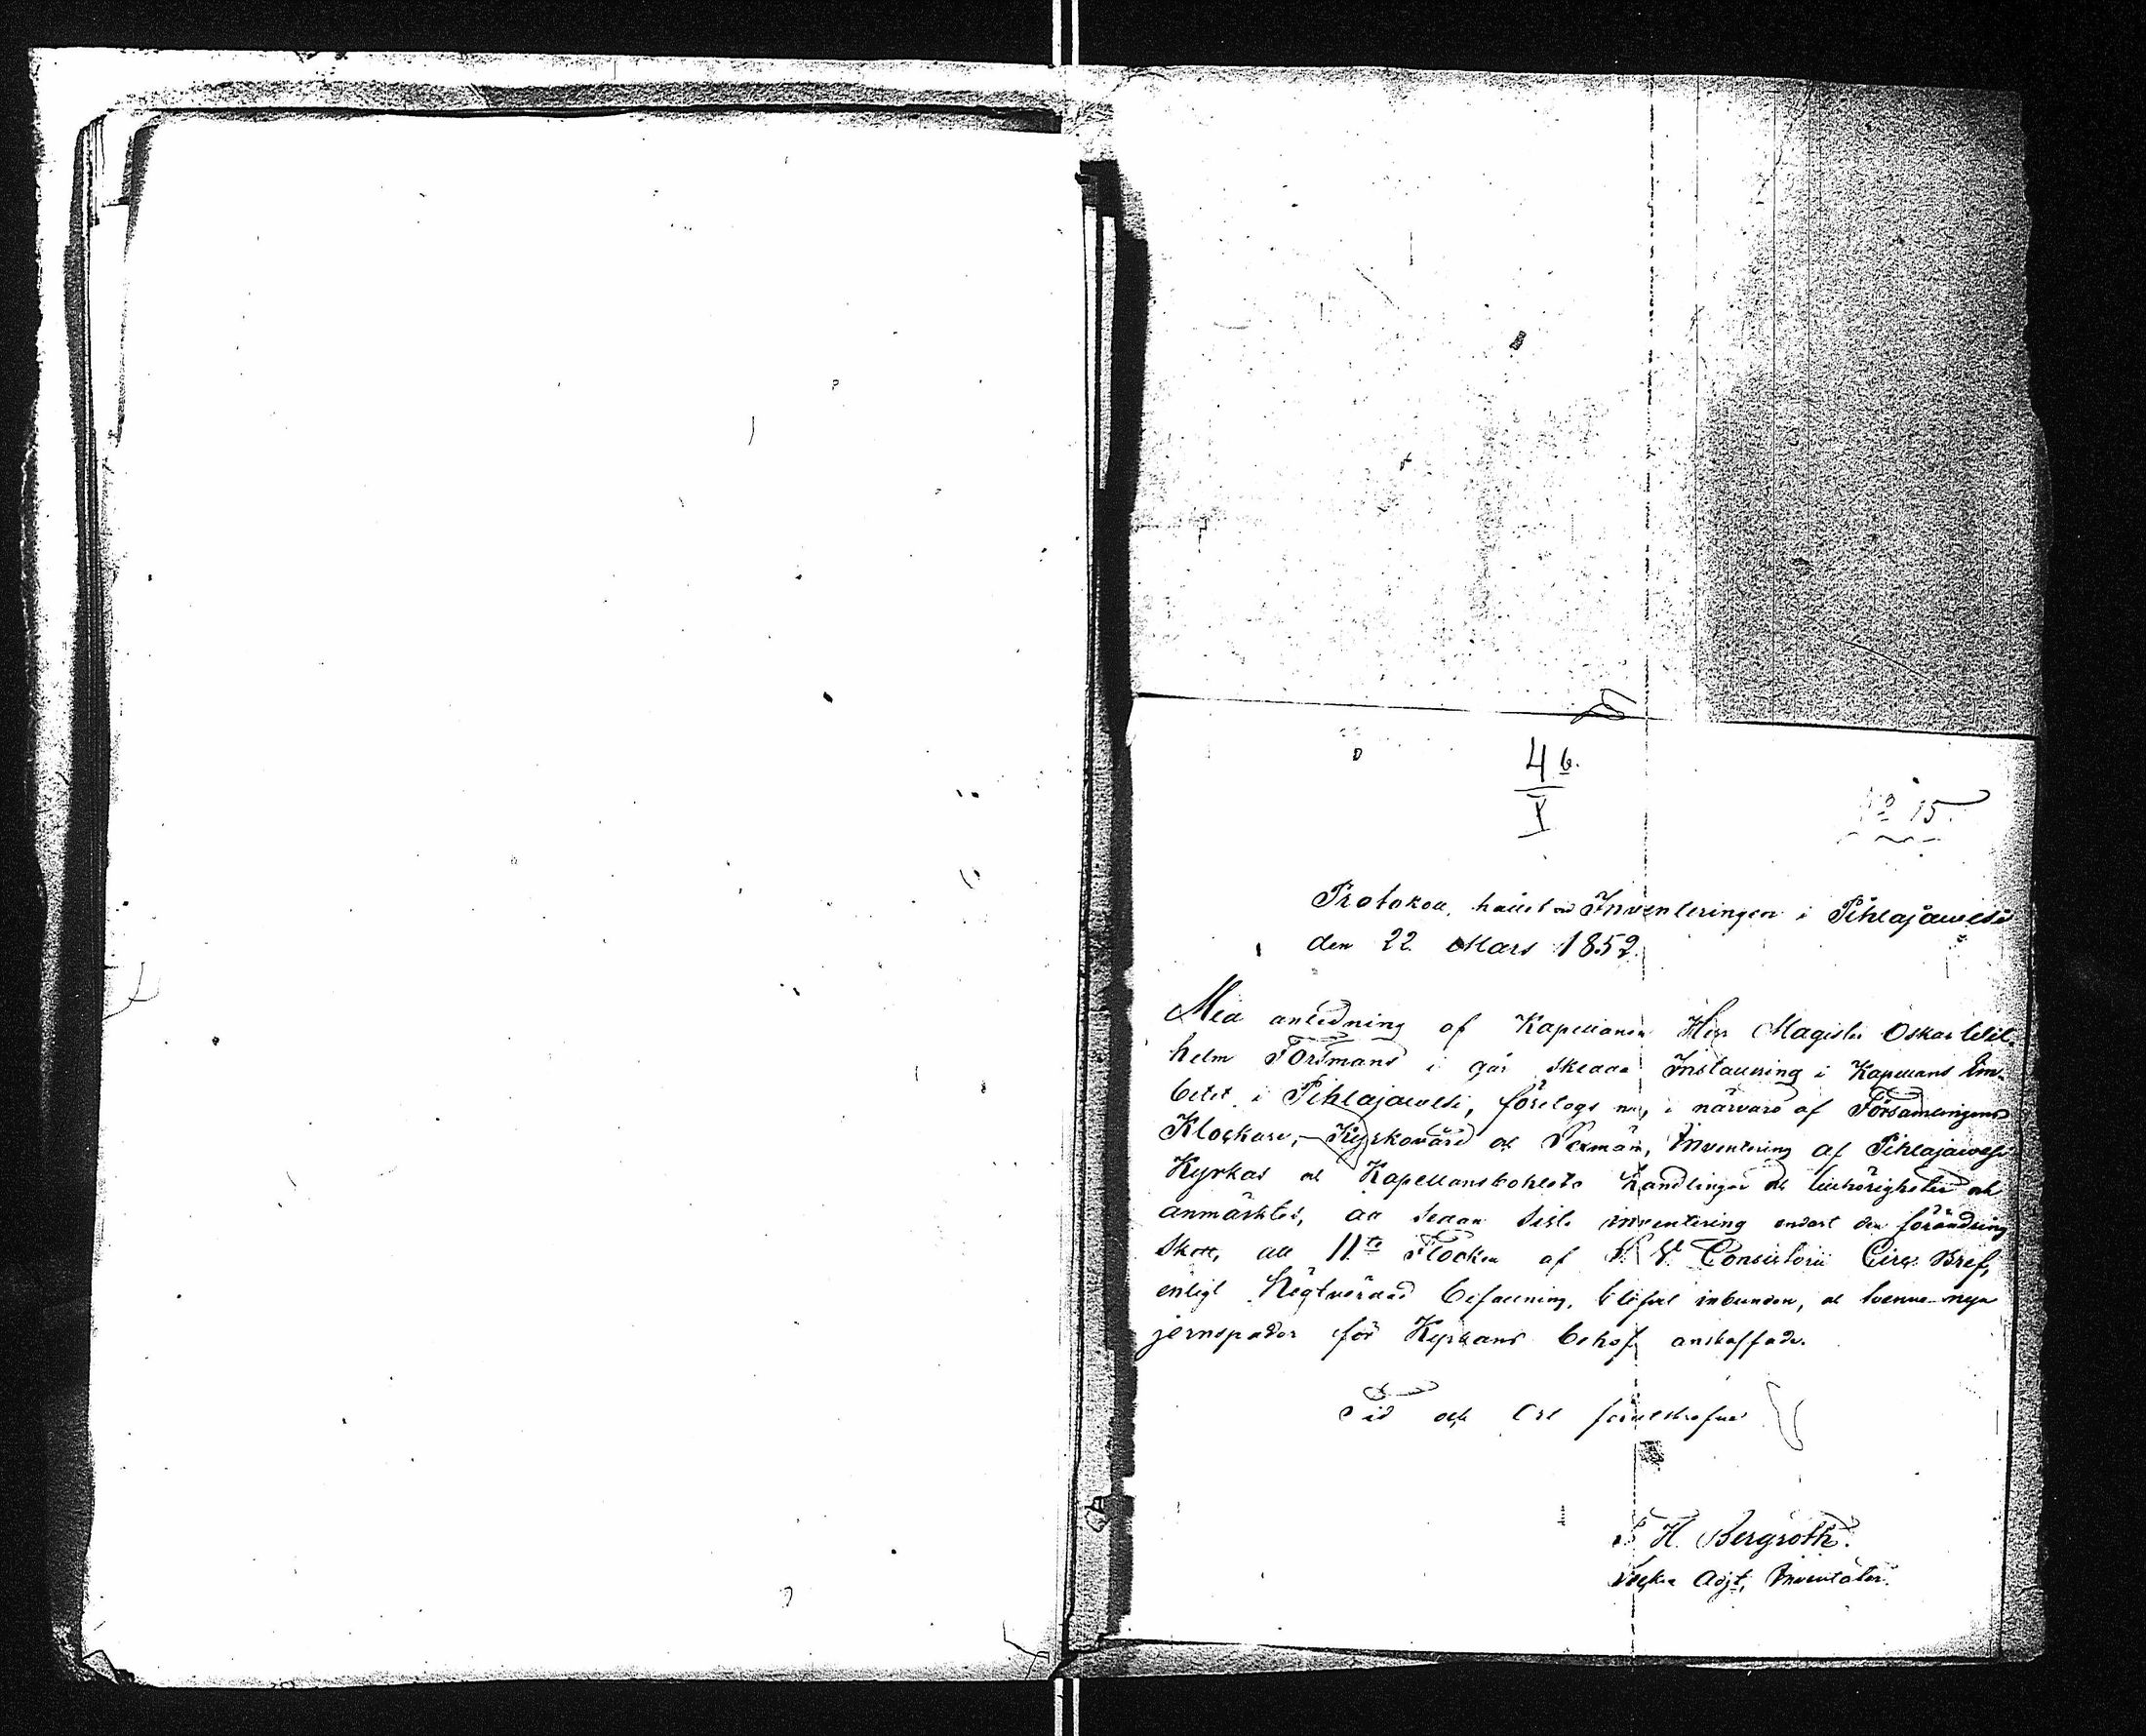 4 b.
I
No 15.
Protokoll, hållet vid Inventeringen i Pihlajawesi
den 22 Mars 1852.
Med anledning af Kapellanen Herr Magister Oskar Wil-
helm Forsmans i går skedda Installering i Kapellans Em-
betet i Pihlajawesi, företogs nu, i närvaro af Församlingens
Klockare, Kyrkovärd och Sexmän, Inventering af Pihlajawesi
Kyrkas och Kapellansbohlets Handlingar och tillhörigheter och
anmärktes, att sedan sista inventering endast den förändring
skett, att 11te Flocken af V. V. Consistorii Circ. Bref,
enligt Högtvördad befallning, blifvit inbunden, och tvenne nya
jernspadar för Kyrkans behof anskaffade.
Tid och Ort förutskrefne
H. Bergroth.
Adjt, Inventator.